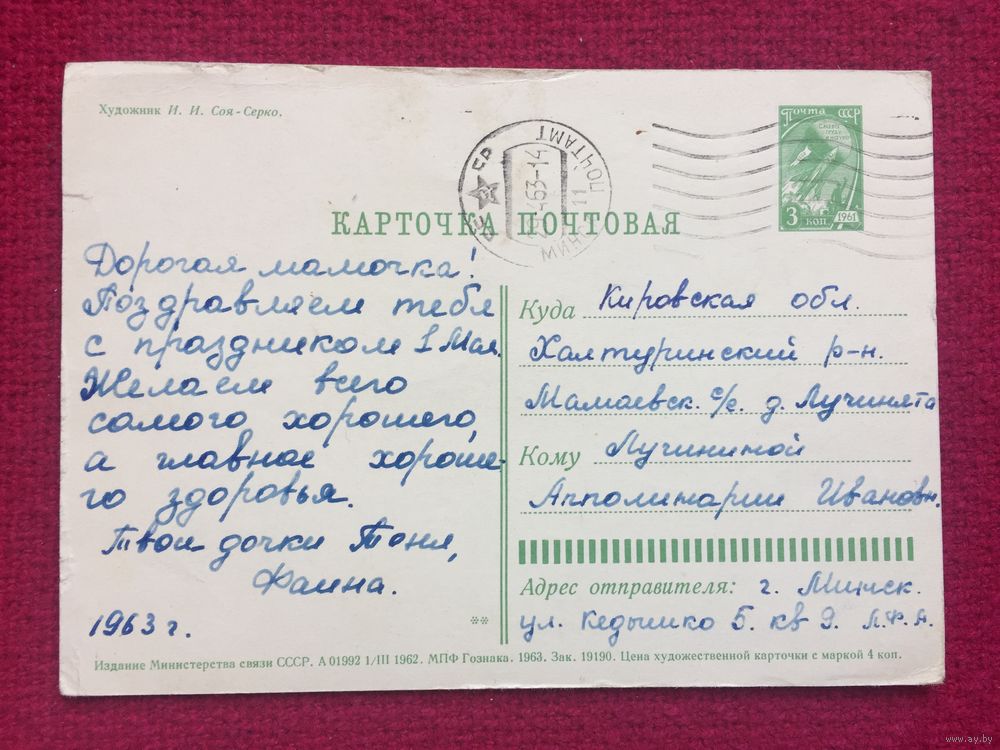 Художник И. И. Соя-Серко.
Почта СССР
3 коп
1961
63-14
МИНСК 11
ПОЧТАМТ
КАРТОЧКА ПОЧТОВАЯ
Дорогая мамочка!
Поздравляем тебя
с праздником 1 Мая.
Желаем всего
самого хорошего,
а главное хороше-
го здоровья.
Твои дочки Тоня,
Фаина.
1963 г.
**
Куда Кировская обл.
Халтуринский р-н.
Мамаевск. с/с. д. Лучинята
Кому Лучининой
Апполинарии Ивановн.
Адрес отправителя: г. Минск.
ул. Кедышко 5. кв 9. Л.Ф.А.
Издание Министерства связи СССР. А 01992 1/III 1962. МПФ Гознака. 1963. Зак. 19190. Цена художественной карточки с маркой 4 коп.
www.ay.by